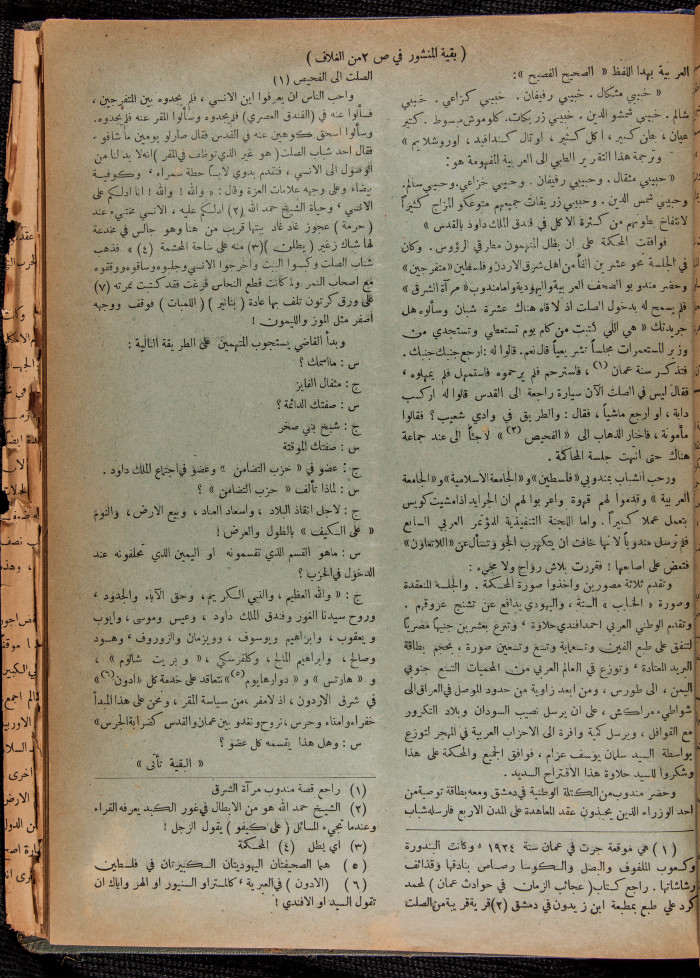 ( بقية المنشور في ص ٢ من الغلاف )
العربية بهذا اللفظ « الصحيح الفصيح » :
« خبيبي مشكال . خبيبي رفيفان . خبيبي كزاعي . خبيبي
شالم . خبيبي شمشو الدين . خبيبي زر بكات . كلوموش مبسوط . كتير
عيان ، بطن كبير ، اكل كتير ، اوتال كنداڤيد ، اوروشلايم »
وترجمة هذا التقرير الطبي الى العربية المفهومة هو :
« حبيبي مثقال . وحبيبي رفيفان . وحبيبي خزاعي . وحبيبي سالم .
وحبيبي شمس الدين . وحبيبي زر يقات جميعهم متوعكو المزاج كثيراً
لانتفاخ بطونهم من كثرة الاكل في فندق الملك داود بالقدس »
فوافقت المحكمة على ان يظل المتهمون مطارقي الرؤوس . وكان
في الجلسة نحو عشرين الفاً من اهل شرق الاردن وفلسطين « متفرجين »
وحضر مندوبو الصحف العربية واليهودية واما مندوب « مرآة الشرق »
فلم يسمح له بدخول الصلت اذ لاقاه هناك عشرة شبان وسألوه هل
جريدتك « هي اللي كتبت من كام يوم تستعطي وتستجدي من
وزير المستعمرات مجلساً تشريعياً قال نعم . قالوا له : ارجع جنبك جنبك .
فتذكر سنة عمان (١) ، فاسترحم فلم يرحموه فاستمهل فلم يمهلوه ،
فقال ليس في الصلت الآن سيارة راجعة الى القدس قالوا له اركب
دابة ، او ارجع ماشياً ، فقال : والطريق في وادي شعيب ؟ فقالوا
مأمونة ، فاختار الذهاب الى « الفحيص (٢) » لاجئاً الى عند جماعة
هناك حتى انتهت جلسة المحاكمة .
ورحب الشباب بمندوبي « فلسطين » و « الجامعة الاسلامية » و « الجامعة
العربية » وقدموا لهم قهوة واعربوا لهم ان الجرايد اذا مشيت كويس
بتعمل عملا كبيراً . واما اللجنة التنفيذية للمؤتمر العربي السابع
فلم ترسل مندوباً لانها خافت ان يتكهرب الجو وتسأل عن « اللاتعاون »
فتعض على اصابعها ! فقررت بلاش رواح ولا مجيء :
وتقدم ثلاثة مصورين واخذوا صورة المحكمة . والجلسة المنعقدة
وصورة « الحباب » الستة ، واليهودي يدافع عن تشنج عروقهم .
وتقدم الوطني العربي احمد افندي حلاوة ، وتبرع بعشرين جنيهاً مصرياً
لتنفق على طبع الفين وتسعماية وتسع وتسعين صورة ، بحجم بطاقة
البريد المعتادة ، وتوزع في العالم العربي من المحميات التسع جنوبي
اليمن ، الى طورس ، ومن ابعد زاوية من حدود الموصل في العراق الى
شواطيء مراكش ، على ان يرسل نصيب السودان وبلاد التكرور
مع القوافل ، ويرسل كمية وافرة الى الاحزاب العربية في المهجر لتوزع
بواسطة السيد سلمان يوسف عزام ، فوافق الجميع والمحكمة على هذا
وشكروا للسيد حلاوة هذا الاقتراح السديد .
وحضر مندوب من الكتلة الوطنية في دمشق ومعه بطاقة توصية من
احد الوزراء الذين يحبذون عقد المعاهدة على المدن الاربع فارسله شباب
( ١ ) هي موقعة جرت في عمان سنة ١٩٢٤ ، وكانت البندورة
وكعوب الملفوف والبصل والكوسا رصاص بنادقها وقذائف
رشاشاتها . راجع كتاب ( عجائب الزمان في حوادث عمان ) لمحمد
كرد علي طبع بمطبعة ابن زيدون في دمشق (٢) قرية قريبة من الصلت
الصلت الى الفحيص (١)
واحب الناس ان يعرفوا اين الانسي ، فلم يجدوه بين المتفرجين ،
فسألوا عنه في ( الفندق العصري ) فلم يجدوه وسألوا المقر عنه فلم يجدوه .
وسألوا اسحق كوهين عنه في القدس فقال صارلو يومين ما شافو .
فقال احد شباب الصلت ( هو غير الذي توظف في المقر ) انه لا بد لنا من
الوصول الى الانسي ، فتقدم بدوي لابساً حطة سمراء ، وكوفية
بيضاء وعلى وجهه علامات العزة وقال : « والله ! والله ! انا ادلكم على
الانسي ، وحياة الشيخ حمد الله (٢) ادلكم عليه ، الانسي مختبيء عند
( حرمة ) عجوز غاد غاد بيتها قريب من هنا وهو جالس في مخدعة
لها شباك زغير ( يطلن ) (٣) منه على ساحة المحشمة (٤) » فذهب
شباب الصلت وكبسوا البيت واخرجوا الانسي وجلبوه وساقوه ووقفوه
مع اصحاب النمر . ولما كانت قطع النحاس فرغت فقد كتبت نمرته (٧)
على ورق كرتون تلف بها عادة ( بنانير ) ( اللمبات ) فوقف ووجهه
اصفر مثل الموز والليمون !
وبدأ القاضي يستجوب المتهمين على الطريقة التالية :
س : ما اسمك ؟
ج : مثقال الفايز
س : صفتك الدائمة ؟
ج : شيخ بني صخر
س : صفتك الموقتة
ج : عضو في « حزب التضامن » وعضو في اجتماع الملك داود .
س : لماذا تألف « حزب التضامن » ؟
ج : لاجل انقاذ البلاد ، واسعاد العباد ، وبيع الارض ، والنوم
« على الكيف » بالطول والعرض !
س : ما هو القسم الذي تقسمونه او اليمين الذي تحلفونه عند
الدخول في الحزب ؟
ج : « والله العظيم ، والنبي الكريم ، وحق الآباء والجدود ،
وروح سيدنا الغور وفندق الملك داود ، وعيسى وموسى ، وايوب
ويعقوب ، وابراهيم ويوسف ، وويزمان والزوروف ، وهود
وصالح ، وابراهيم المالح ، وكلفرسكي ، « و بريت شالوم » ،
و « هارتس » و « دوارهايوم (٥) » نتعاقد على خدمة كل « ادون (٦) »
في شرق الاردون ، اذ لا مفر ، من سياسة المقر ، ونحن على هذا المبدأ
خفراء وامناء وحرس ، نروح ونغدو بين عمان والقدس كشرابة الجرس »
س : وهل هذا يقسمه كل عضو ؟
« البقية تأتي »
(١) راجع قصة مندوب مرآة الشرق
(٢) الشيخ حمد الله هو من الابطال في غور الكبد يعرفه القراء
وعندما تجيء المسائل ( على كيفو ) يقول الزجل !
(٣) اي يطل (٤) المحكمة
( ٥ ) هما الصحيفتان اليهوديتان الكبيرتان في فلسطين
( ٦ ) ( الادون ) في العبرية ، كالمستر او السنيور او الهر واياك ان
تقول السيد او الافندي !